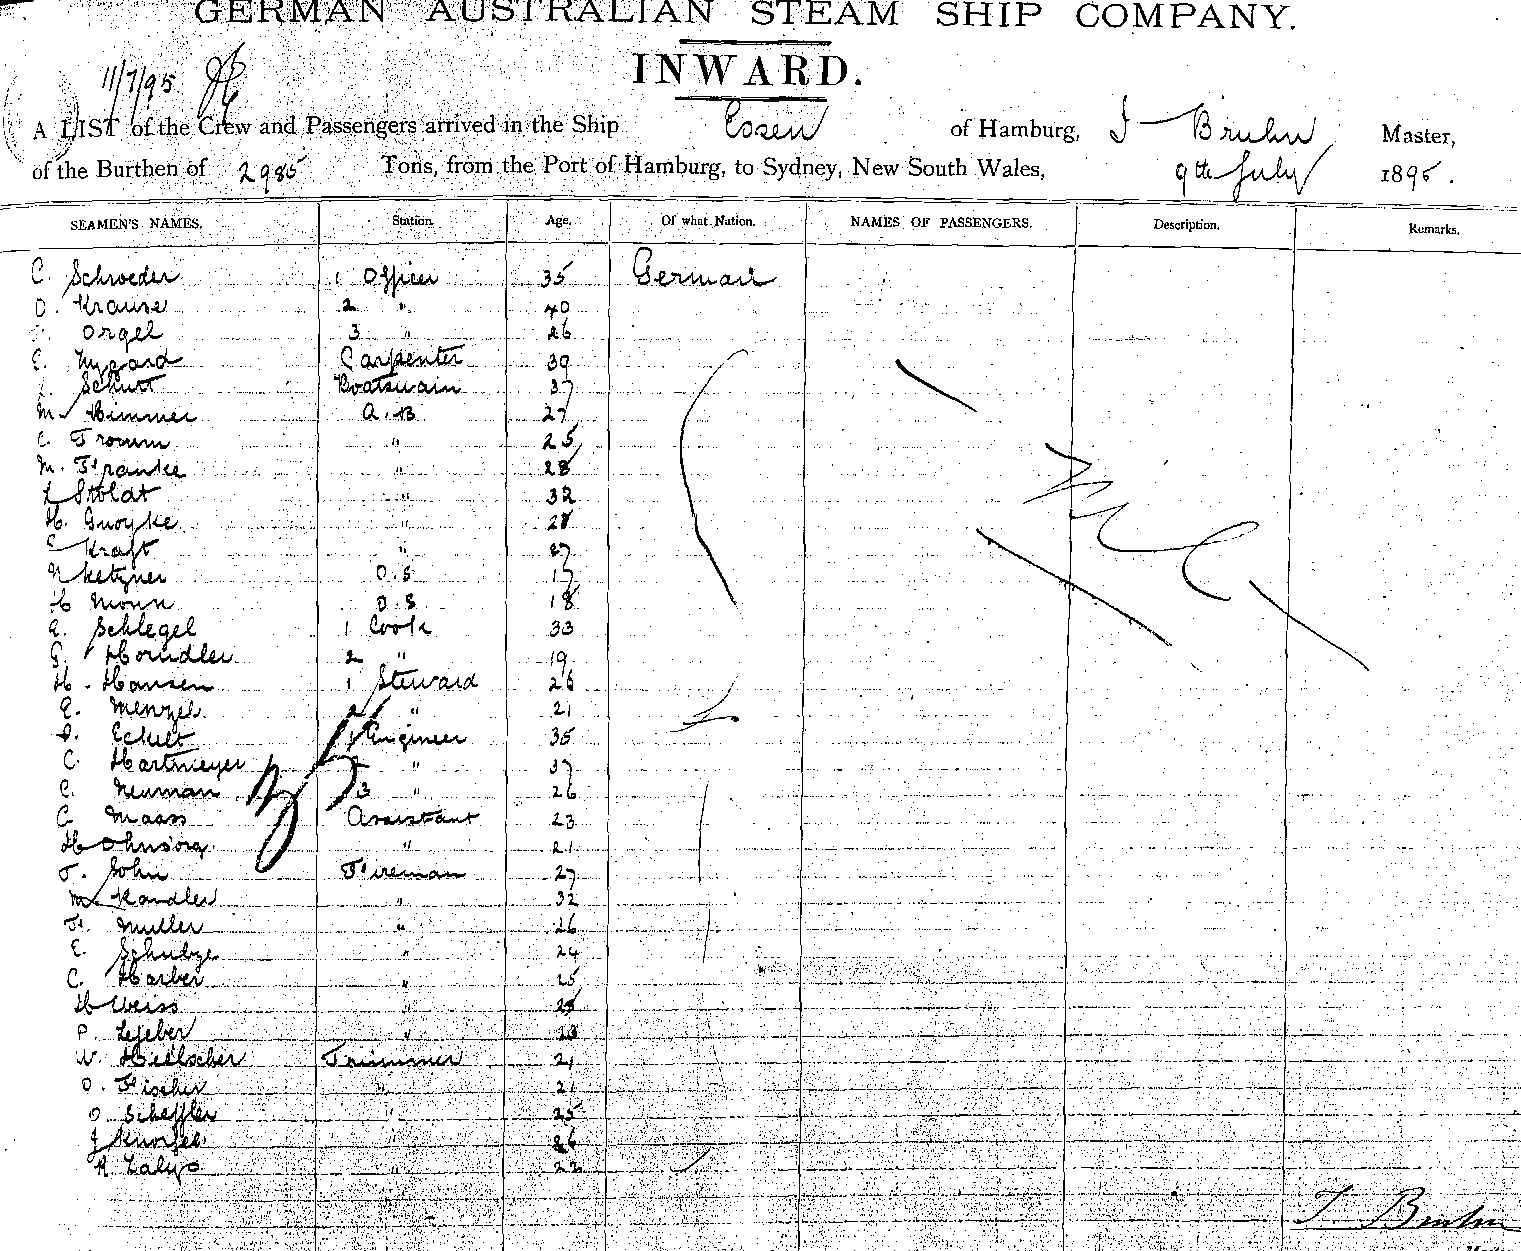 GERMAN AUSTRALIAN STEAM SHIP COMPANY.
INWARD.
11/7/95
A LIST of the Crew and Passengers arrived in the Ship Essen of Hamburg, J Bruhn Master,
of the Burthen of 2985 Tons, from the Port of Hamburg, to Sydney, New South Wales, 9th July 1895.
SEAMEN'S NAMES. Station. Age. Of what Nation. NAMES OF PASSENGERS. Description. Remarks.
C. Schroeder 1 Officer 35 German
O. Krause 2 " 40
Orgel 3 " 26
C. Nygard Carpenter 30
Schutt Boatswain 37
M. Himmer A.B 27
C. Fromm " 25
M. Franke " 28
Stoldt " 32
H. Gnoyke " 28
Kraft " 27
Ketzner O.S 17
H Monn O.S 18
A. Schlegel 1 Cook 33
G. Horndler 2 " 19
H. Hansen 1 Steward 26
E. Menzel 2 " 21
Eckelt 1 Engineer 35
C. Hartmeyer 2 " 37
C. Neuman 3 " 26
C. Maass Assistant 23
H Ohnsorg " 21
F. John Fireman 27
M. Kandler " 32
Fr. Muller " 26
E. Schulze " 24
C. Harber " 25
H Weiss " 25
P. Lefeber "
W. Hielscher Trimmer 21
O. Fischer " 21
O Scheffler " 25
J Knorfel " 26
" 22
J. Bruhn